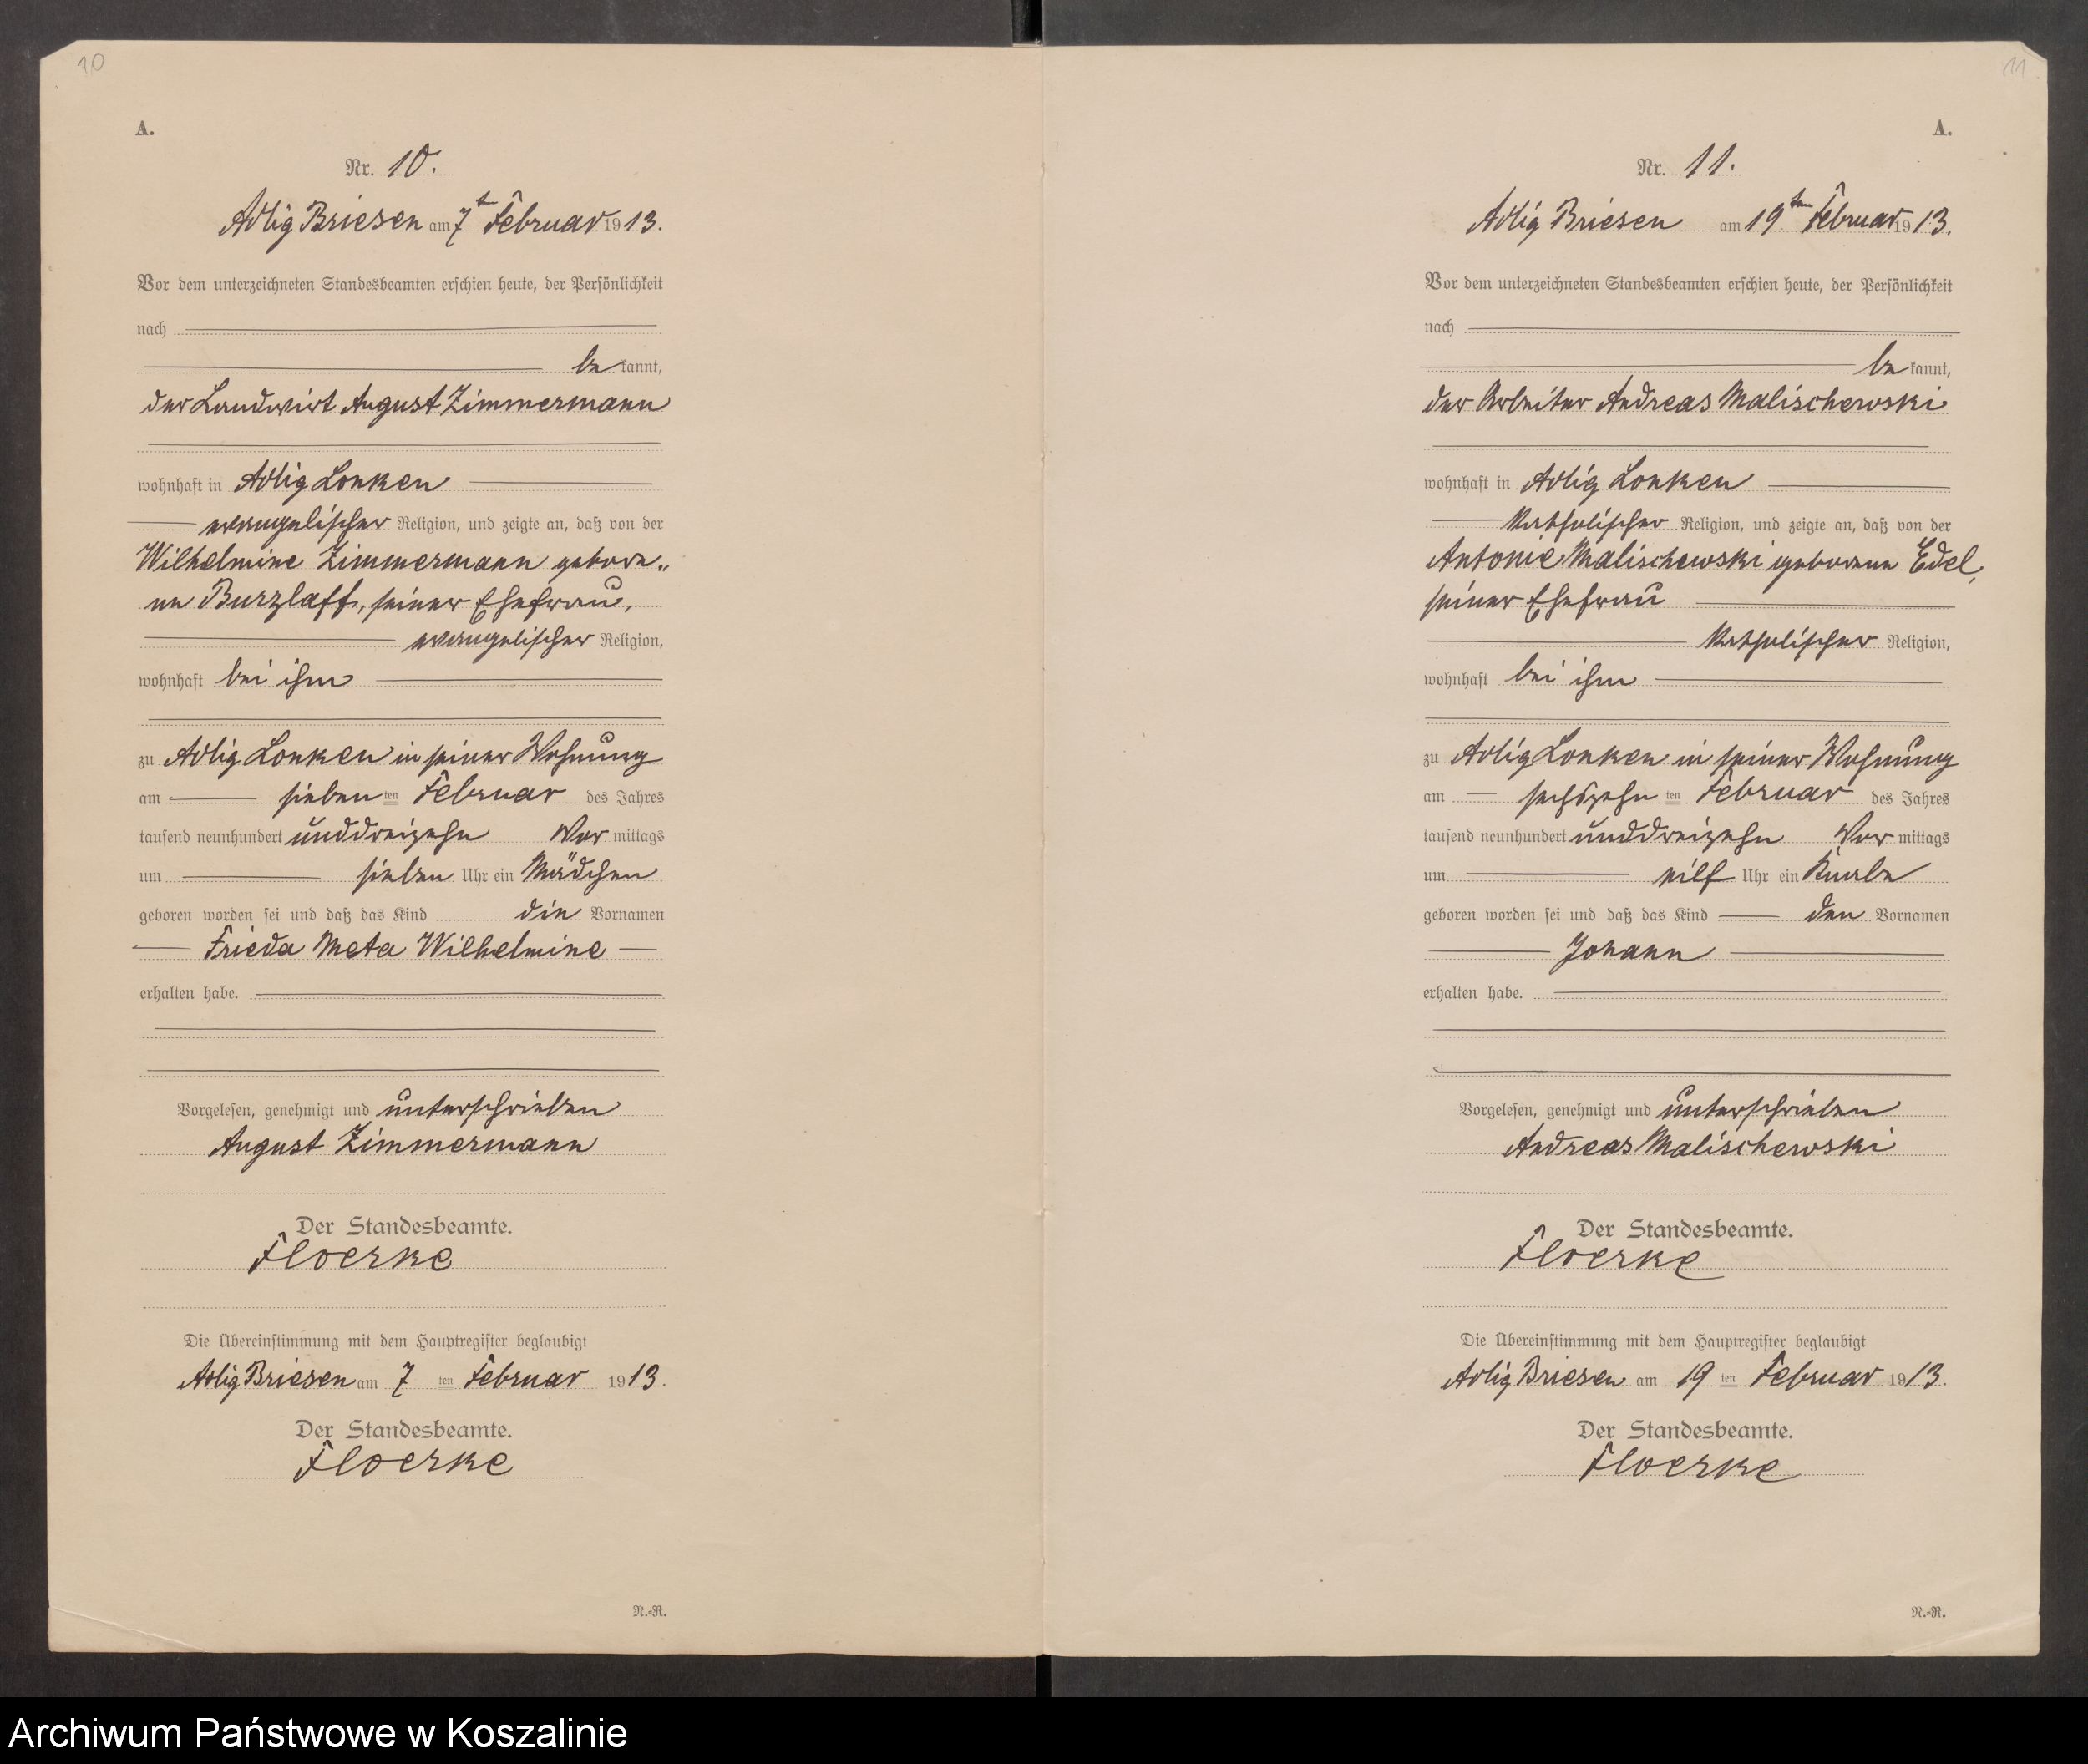 10
A.
Nr. 10.
Adlig Briesen am 7ten Februar 1913.
Vor dem unterzeichneten Standesbeamten erschien heute, der Persönlichkeit
nach
be kannt,
der Landwirt August Zimmermann
wohnhaft in Adlig Lonken
evangelischer Religion, und zeigte an, daß von der
Wilhelmine Zimmermann gebore„
ne Burzlaff, seiner Ehefrau,
evangelischer Religion,
wohnhaft bei ihm
zu Adlig Lonken in seiner Wohnung
am sieben ten Februar des Jahres
tausend neunhundert und dreizehn Vor mittags
um sieben Uhr ein Mädchen
geboren worden sei und daß das Kind die Vornamen
Frieda Meta Wilhelmine
erhalten habe.
Vorgelesen, genehmigt und unterschrieben
August Zimmermann
Der Standesbeamte.
Floerke
Die Übereinstimmung mit dem Hauptregister beglaubigt
Adlig Briesen am 7 ten Februar 1913.
Der Standesbeamte.
Floerke
N.-R.
11
A.
Nr. 11.
Adlig Briesen am 19ten Februar 1913.
Vor dem unterzeichneten Standesbeamten erschien heute, der Persönlichkeit
nach
be kannt,
der Arbeiter Andreas Malischewski
wohnhaft in Adlig Lonken
katholischer Religion, und zeigte an, daß von der
Antonie Malischewski geborene Edel,
seiner Ehefrau
katholischer Religion,
wohnhaft bei ihm
zu Adlig Lonken in seiner Wohnung
am sechszehn ten Februar des Jahres
tausend neunhundert und dreizehn Vor mittags
um eilf Uhr ein Knabe
geboren worden sei und daß das Kind den Vornamen
Johann
erhalten habe.
Vorgelesen, genehmigt und unterschrieben
Andreas Malischewski
Der Standesbeamte.
Floerke
Die Übereinstimmung mit dem Hauptregister beglaubigt
Adlig Briesen am 19 ten Februar 1913.
Der Standesbeamte.
Floerke
N.-R.
Archiwum Państwowe w Koszalinie